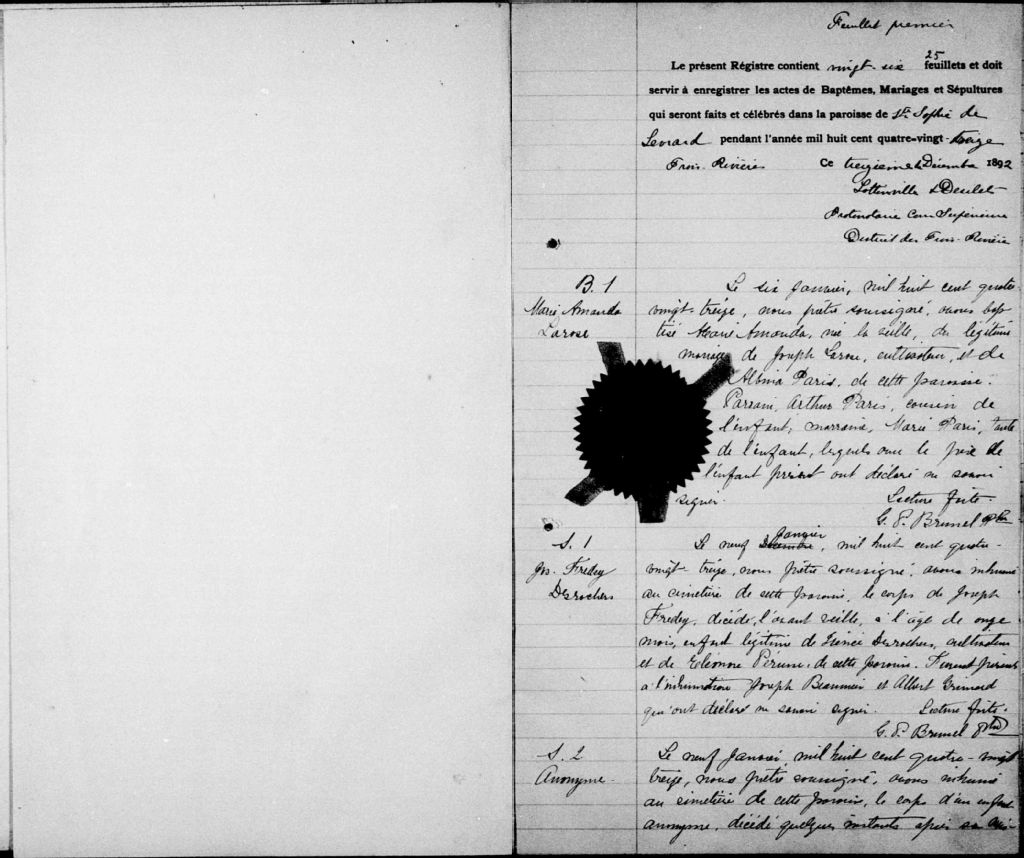 Feuillet premier
25
Le présent Régistre contient vingt-six feuillets et doit
servir à enregistrer les actes de Baptêmes, Mariages et Sépultures
qui seront faits et célébrés dans la paroisse de Ste Sophie de
Levrard pendant l'année mil huit cent quatre-vingt-treize
Trois-Rivières Ce treizieme de Décembre 1892
Lottinville & Deulet
Protonotaire Cour Supérieure
District des Trois-Rivières
B. 1
Marie Amanda
Larose
Le six Janvier, mil huit cent quatre
vingt-treize, nous prêtre soussigné, avons bap
tisé Marie Amanda, née la veille, du légitime
mariage de Joseph Larose, cultivateur, et de
Albina Paris, de cette paroisse.
Parrain, Arthur Paris, cousin de
l'enfant, marraine, Marie Paris, tante
de l'enfant, lesquels avec le père de
l'enfant présent ont déclaré ne savoir
signer. Lecture faite.
G. P. Brunel Ptre
S. 1
Jos. Frédey
Desrochers
Janvier
Le neuf Décembre, mil huit cent quatre-
vingt-treize, nous prêtre soussigné, avons inhumé
au cimetière de cette paroisse, le corps de Joseph
Frédey, décédé, l'avant veille, à l'âge de onze
mois, enfant légitime de Desrochers, cultivateur
et de Eléonore Perusse, de cette paroisse. Furent présents
à l'inhumation Joseph Beaumier et Albert Grimard
qui ont déclaré ne savoir signer. Lecture faite.
G. P. Brunel Ptre
S. 2
Anonyme
Le neuf Janvier, mil huit cent quatre-vingt
treize, nous prêtre soussigné, avons inhumé
au cimetière de cette paroisse, le corps d'un enfant
anonyme, décédé quelques instants après sa nais-